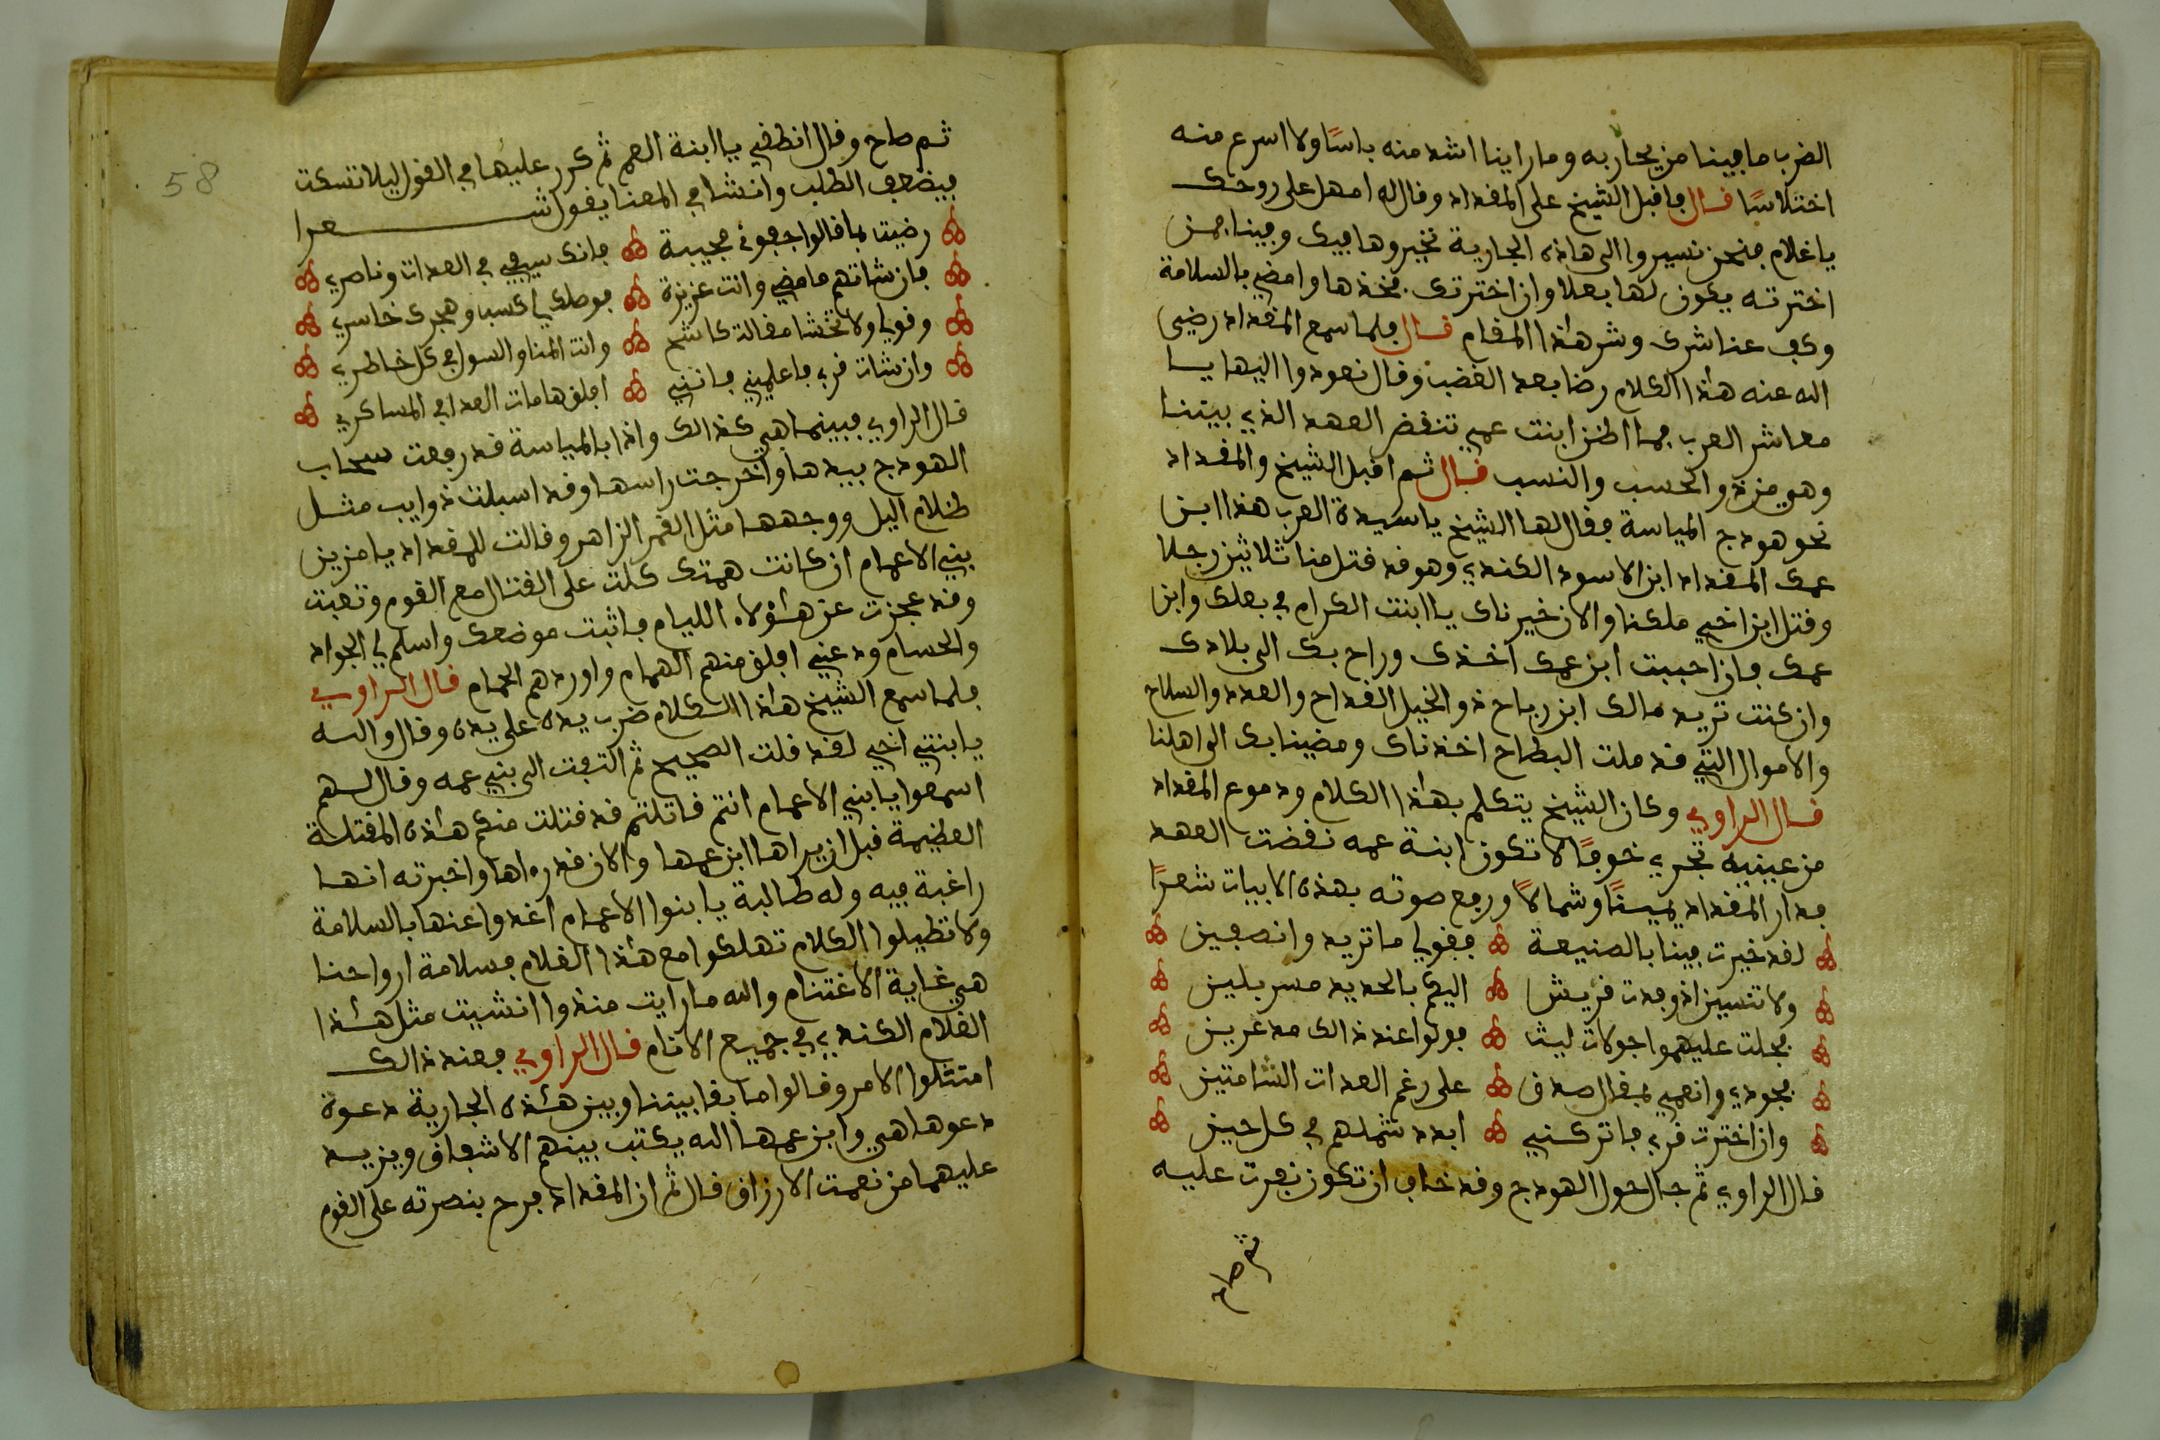 الضرب ما فينا من يحاربه وما راينا اشد منه باسًا ولا اسرع منه
اختلاسًا قال فاقبل الشيخ على المقداد وقال له امهل على روحك
يا غلام فنحن نسيروا الى هاذه الجارية نخيروها فيك وفينا فمن
اخترته يكون لها بعلا وان اخترتك فخذها وامضي بالسلامة
وكف عنا شرك وشر هٰذا المقام قال فلما سمع المقداد رضي
الله عنه هٰذا الكلام رضا بعد الغضب وقال نعودوا اليها يا
معاشر العرب فما اظن ابنت عمي تنقض العهد الذي بيننا
وهي من ذو الحسب والنسب قال ثم اقبل الشيخ والمقداد
نحو هودج المياسة فقال لها الشيخ يا سيدة العرب هذا ابن
عمك المقداد ابن الاسود الكندي وهو قد قتل منا ثلاثين رجلا
وقتل ابن اخي ملكنا والان خيرناك يا ابنت الكرام في بعلك وابن
عمك فان احببت ابن عمك اخذك وراح بك الى بلادك
وان كنت تريد مالك ابن رباح ذو الخيل القداح والعدد والسلاح
والاموال التي قد ملت البطاح اخذناك ومضينا بك الى اهلنا
قال الراوي وكان الشيخ يتكلم بهٰذا الكلام ودموع المقداد
من عينيه تجري خوفًا لا تكون ابنة عمه نقضت العهد
فدار المقداد يمينًا وشمالاً ورفع صوته بهذه الابيات شعرًا
لقد خيرت فينا بالصنيعة فقولي ما تريد وانصفين
ولا تنسين اذ وفدت قريش اليكم بالحديد مسربلين
فجلت عليهموا جولات ليث فولوا عند ذالك مدغرين
فجودي وانعمي بمقال صدق على رغم العدات الشامتين
وان اخترت قربي ما تركني ابدد شملهم في كل حين
قال الراوي ثم جال حول الهودج وقد خاف ان تكون نفرت عليه
ثم صاح
58
ثم صاح وقال انطقي يا ابنة العم ثم كرر عليها في القول ليلا تسكت
فيضعف الطلب وانشا في المعنا يقول شعرا
رضيت بما قالوا فجعوني مجيبة فانك سيفي في العدات وناصري
فان شاتهم ما مضي وانت عزيزة فوصلي كسبا وهجرك خاسري
وقولي ولا تخشا مقالة كاشح وانت المنا والسول في كل خاطري
وان شات قربي فاعلميني فانني افلق هامات العدا في المساكري
قال الراوي فبينما هي كذالك واذا بالمياسة قد رفعت سجاب
الهودج بيدها واخرجت راسها وقد اسبلت ذوايب مثل
ظلام اليل ووجهها مثل القمر الزاهر وقالت للمقداد يا من زين
بني الاعمام ان كانت همتك كلت على القتال مع القوم وتعبت
وقد عجزت عن هٰؤلاء الليام فاثبت موضعك واسلم لي الجواد
والحسام ودعني افلق منهم الهمام واوردهم الحمام قال الراوي
فلما سمع الشيخ هٰذا الكلام ضرب يده على يده وقال والله
يا بنتي اخي لقد قلت الصحيح ثم التفت الى بني عمه وقال لهم
اسمعوا يا بني الاعمام انتم قاتلتم قد قتلت منكم هٰذه المقتلة
العظيمة قبل ان يراها ابن عمها والان قد رءاها واخبرته انها
راغبة فيه وله طالبة يا بنوا الاعمام اغدوا عنها بالسلامة
ولا تطيلوا الكلام تهلكوا مع هٰذا الغلام فسلامة ارواحنا
هي غاية الاغتنام والله ما رايت منذوا انشيت مثل هٰذا
الغلام الكندي في جميع الانام قال الراوي فعند ذالك
امتثلوا الامر وقالوا ما بقا بيننا وبين هٰذه الجارية دعوة
دعوها هي وابن عمها الله يكتب بينهم الاشفاق ويزيد
عليهما من نعمت الارزاق قال ثم ان المقداد فرح بنصرته على القوم